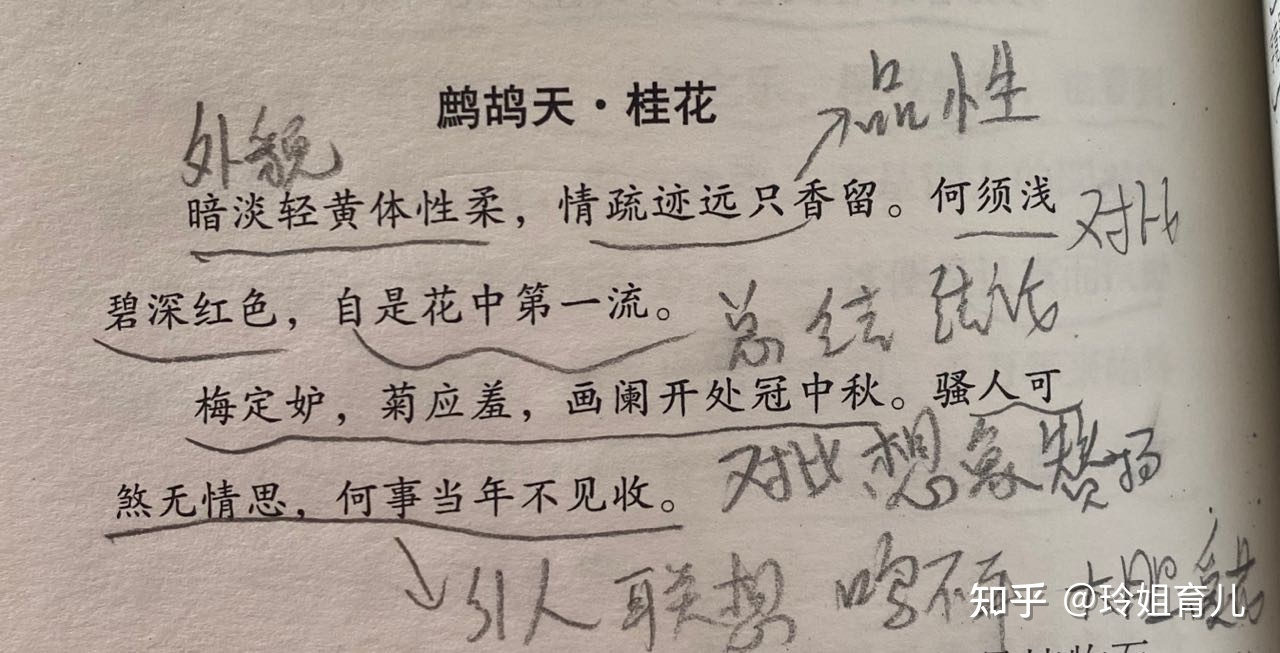 鹧鸪天·桂花
品性
外貌
暗淡轻黄体性柔，情疏迹远只香留。何须浅
对比
碧深红色，自是花中第一流。
总结
梅定妒，菊应羞，画阑开处冠中秋。骚人可
对比 想象 赞扬
煞无情思，何事当年不见收。
引人联想 鸣不
知乎 @玲姐育儿